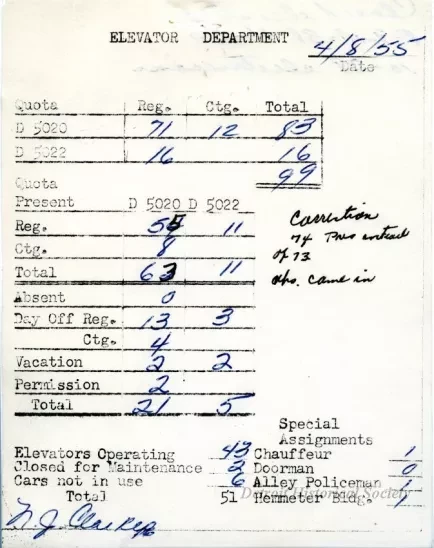 ELEVATOR DEPARTMENT 4/8/55
Date
Quota Reg. Ctg. Total
D 5020 71 12 83
D 5022 16 16
Quota 99
Present D 5020 D 5022
Reg. 55 11
Ctg. 8
Total 63 11
Absent 0
Day Off Reg. 13 3
Ctg. 4
Vacation 2 2
Permission 2
Total 21 5
Correction
74 Pres instead
of 73
abs. came in
Special
Assignments
Elevators Operating 43 Chauffeur 1
Closed for Maintenance 2 Doorman 0
Cars not in use 6 Alley Policeman 1
Total 51 Hemmeter Bldg. 1
Detroit Historical Society